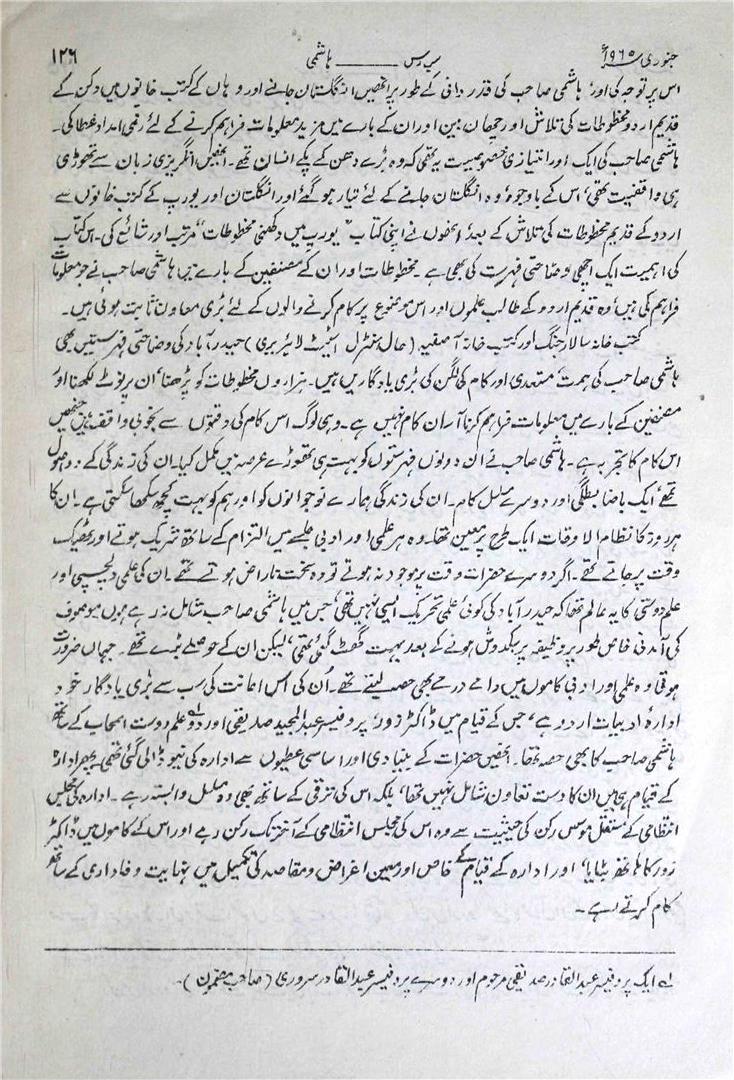 جنوری ۱۹۶۵ء سب رس ــــــ ہاشمی ۱۲۶
اس پر توجہ کی اور ہاشمی صاحب کی قدر دانی کے طور پر انھیں انگلستان جانے اور وہاں کے کتب خانوں میں دکن کے
قدیم اردو مخطوطات کی تلاش اور چھان بین اور ان کے بارے میں مزید معلومات فراہم کرنے کے لئے رقمی امداد عطا کی۔
ہاشمی صاحب کی ایک اور امتیازی خصوصیت یہ تھی کہ وہ بڑے دھن کے پکے انسان تھے۔ انھیں انگریزی زبان سے تھوڑی
ہی واقفیت تھی، اس کے باوجود وہ انگلستان جانے کے لئے تیار ہو گئے اور انگلستان اور یورپ کے کتب خانوں سے
اردو کے قدیم مخطوطات کی تلاش کے بعد انھوں نے اپنی کتاب "یورپ میں دکھنی مخطوطات" مرتب اور شائع کی۔ اس کتاب
کی اہمیت ایک اچھی وضاحتی فہرست کی بھی ہے۔ مخطوطات اور ان کے مصنفین کے بارے میں ہاشمی صاحب نے جو معلومات
فراہم کی ہیں، وہ قدیم اردو کے طالب علموں اور اس موضوع پر کام کرنے والوں کے لئے بڑی معاون ثابت ہوئی ہیں۔
کتب خانہ سالار جنگ اور کتب خانہ آصفیہ (حال سنٹرل اسٹیٹ لائبریری) حیدرآباد کی وضاحتی فہرستیں بھی
ہاشمی صاحب کی ہمت، مستعدی اور کام کی لگن کی بڑی یادگاریں ہیں۔ ہزاروں مخطوطات کو پڑھنا، ان پر نوٹ لکھنا اور
مصنفین کے بارے میں معلومات فراہم کرنا آسان کام نہیں ہے۔ وہی لوگ اس کام کی دقتوں سے بخوبی واقف ہیں جنھیں
اس کام کا تجربہ ہے۔ ہاشمی صاحب نے ان دونوں فہرستوں کو بہت ہی تھوڑے عرصہ میں مکمل کیا۔ ان کی زندگی کے دو اصول
تھے، ایک باضابطگی اور دوسرے مسلسل کام۔ ان کی زندگی ہمارے نوجوانوں کو اور ہم کو بہت کچھ سکھا سکتی ہے۔ ان کا
ہر روز کا نظام الاوقات ایک طرح پر معین تھا۔ وہ ہر علمی اور ادبی جلسے میں التزام کے ساتھ شریک ہوتے اور ٹھیک
وقت پر جاتے تھے۔ اگر دوسرے حضرات وقت پر موجود نہ ہوتے تو وہ سخت ناراض ہوتے تھے۔ ان کی علمی دلچسپی اور
علم دوستی کا یہ عالم تھا کہ حیدرآباد کی کوئی علمی تحریک ایسی نہیں تھی، جس میں ہاشمی صاحب شامل نہ رہے ہوں موصوف
کی آمدنی خاص طور پر وظیفہ پر سبکدوش ہونے کے بعد بہت گھٹ گئی تھی، لیکن ان کے حوصلے بڑے تھے۔ جہاں ضرورت
ہوتی وہ علمی اور ادبی کاموں میں دامے درمے بھی حصہ لیتے تھے۔ اُن کی اس اعانت کی سب سے بڑی یادگار خود
ادارۂ ادبیات اردو ہے، جس کے قیام میں ڈاکٹر زور، پروفیسر عبدالمجید صدیقی اور دو لے علم دوست اصحاب کے ساتھ
ہاشمی صاحب کا بھی حصہ تھا۔ انھیں حضرات کے بنیادی اور اساسی عطیوں سے ادارہ کی نیو ڈالی گئی تھی۔ پھر ادارہ
کے قیام ہی میں ان کا دست تعاون شامل نہیں تھا، بلکہ اس کی ترقی کے ساتھ بھی وہ مسلسل وابستہ رہے۔ ادارہ کی مجلس
انتظامی کے مستقل مؤسس رکن کی حیثیت سے وہ اس کی مجلس انتظامی کے آخر تک رکن رہے اور اس کے کاموں میں ڈاکٹر
زور کا ہاتھ بٹایا، اور ادارہ کے قیام کے خاص اور معین اغراض و مقاصد کی تکمیل میں نہایت وفاداری کے ساتھ
کام کرتے رہے۔
لے ایک پروفیسر عبدالقادر صدیقی مرحوم اور دوسرے پروفیسر عبدالقادر سروری (صاحب مضمون)۔